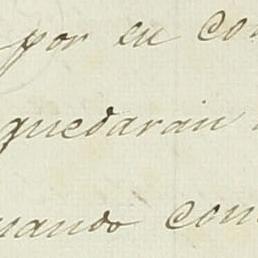 por su con
quedaran
uando com